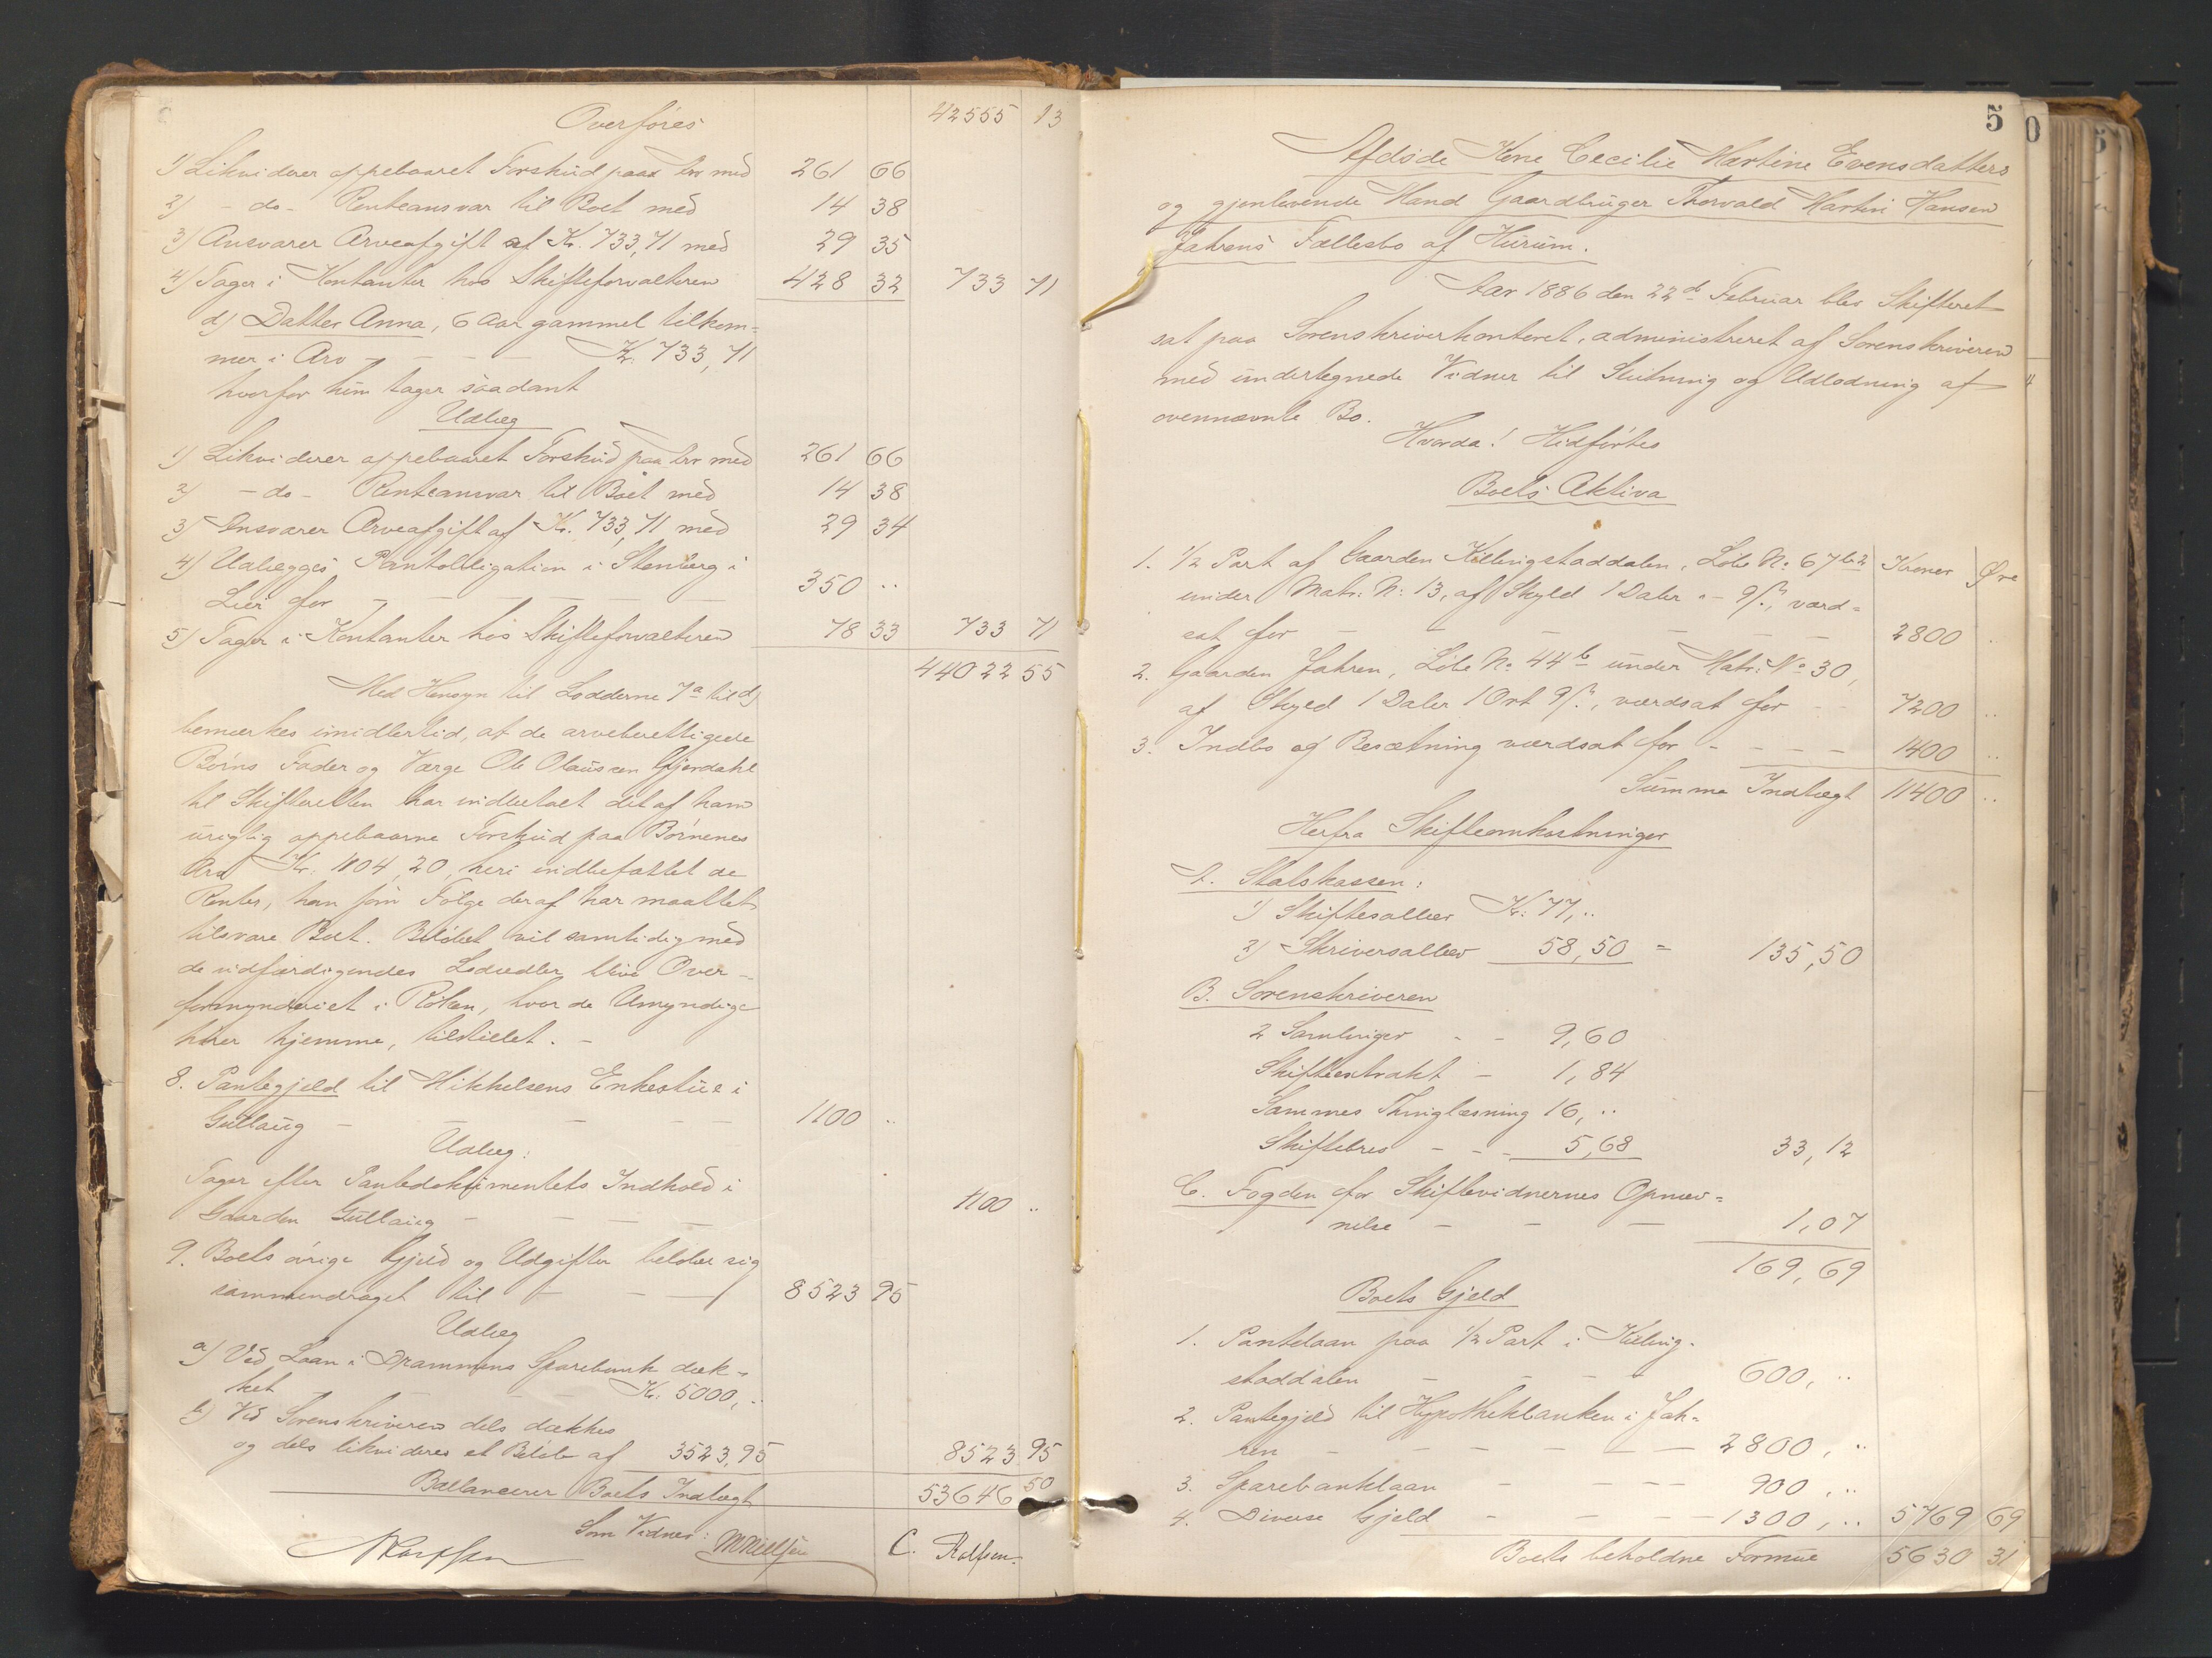 Overføres 42555 13
1) Likviderer oppebaaret Forskud paa Arv med 261 66
2) - do - Renteansvar til Boet med 14 38
3) Ansvarer Arveafgift af Kr. 733,71 med 29 35
4) Tager i Kontanter hos Skifteforvalteren 428 32 733 71
d) Datter Anna, 6 Aar gammel tilkom=
mer i Arv - - - - Kr. 733,71
hvorfor hun tager saadant
Udlæg
1) Likviderer oppebaaret Forskud paa Arv med 261 66
2) - do - Renteansvar til Boet med 14 38
3) Ansvarer Arveafgift af Kr. 733,71 med 29 34
4) Udlægges Pantobligation i Stenberg i
Lier for - - - - - 350 ..
5) Tager i Kontanter hos Skifteforvalteren 78 33 733 71
44022 55
Med Hensyn til Lodderne 7a til d)
bemærkes imidlertid, at de arveberettigede
Børns Fader og Værge Ole Olaussen Gjerdahl
til Skifteretten har indbetalt det af ham
urigtig oppebaarne Forskud paa Børnenes
Arv Kr. 1104,20, heri indbefattet de
Renter, han som Følge deraf har maattet
tilsvare Boet. Beløbet vil samtidig med
de udfærdigendes Lodsedler blive Over-
formynderiet i Røken, hvor de Umyndige
hører hjemme, tilstillet. -
8. Pantegjeld til Mikkelsens Enkestue i
Gullaug - - - - - 1100 ..
Udlæg:
Tager efter Pantedokumentets Indhold i
Gaarden Gullaug - - - - 1100 ..
9. Boets øvrige Gjeld og Udgifter beløber sig
sammendraget til - - - 8523 95
Udlæg
a) Ved Laan i Drammens Sparebank dæk-
ket - - - Kr. 5000, ..
b) Ved Sorenskriveren dels dækkes
og dels likvideres et Beløb af 3523,95 8523 95
Ballancerer Boets Indtægt 53646 50
Som Vidner: M Nielsen C. Rolfsen.
5
Afdøde Kone Cecilie Martine Evensdatters
og gjenlevende Mand Gaardbruger Thorvald Martin Hansen
Jahrens Fællesbo af Hurum.
Aar 1886 den 22d Februar blev Skifteret
sat paa Sorenskriverkontoret, administreret af Sorenskriveren
med undertegnede Vidner til Slutning og Udlodning af
ovennævnte Bo.
Hvorda! Hidførtes
Boets Aktiva
1. 1/2 Part af Gaarden Killingstaddalen, Løbe No 67 b2 Kroner Øre
under Matr. No 13, af Skyld 1 Daler " - 9 ß, værd=
sat for - - - - - - 2800 ..
2. Gaarden Jahren, Løbe No 44 b under Matr: No 30,
af Skyld 1 Daler 1 Ort 9 ß, værdsat for - - 7200 ..
3. Indbo og Besætning værdsat for - - - - 1400 ..
Summa Indtægt 11400 ..
Herfra Skifteomkostninger
A. Statskassen:
1) Skiftesallær Kr: 77, ..
2) Skriversallær 58,50 = 135,50
B. Sorenskriveren
2 Samlinger - - 9,60
Skifteextrakt - 1,84
Sammes Thinglæsning 16, ..
Skiftebrev - - - 5,68 33,12
C. Fogden for Skiftevidnernes Opnæv=
nelse - - - 1,07
169,69
Boets Gjeld
1. Pantelaan paa 1/2 Part i Killing-
staddalen - - - - 600, ..
2. Pantegjeld til Hypothekbanken i Jah=
ren - - - - - - 2800, ..
3. Sparebanklaan - - - - 900, ..
4. Diverse Gjeld - - - - 1300, .. 5769 69
Boets beholdne Formue 5630 31